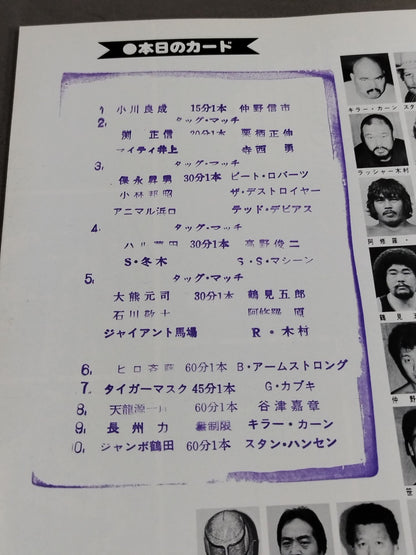 ●本日のカード
1. 小川良成 15分1本 仲野信市
2. タッグ・マッチ
渕 正信 20分1本 栗栖正伸
マイティ井上 寺西 勇
3. タッグ・マッチ
保永昇男 30分1本 ピート・ロバーツ
小林邦昭 ザ・デストロイヤー
アニマル浜口 テッド・デビアス
4. タッグ・マッチ
ハル薗田 30分1本 高野俊二
S・冬木 S・S・マシーン
5. タッグ・マッチ
大熊元司 30分1本 鶴見五郎
石川敬士 阿修羅 原
ジャイアント馬場 R・木村
6. ヒロ斉藤 60分1本 B・アームストロング
7. タイガーマスク 45分1本 G・カブキ
8. 天龍源一郎 60分1本 谷津嘉章
9. 長州 力 無制限 キラー・カーン
10. ジャンボ鶴田 60分1本 スタン・ハンセン
キラー・カーン
ラッシャー木村
阿修羅・
鶴見五
仲野
笹